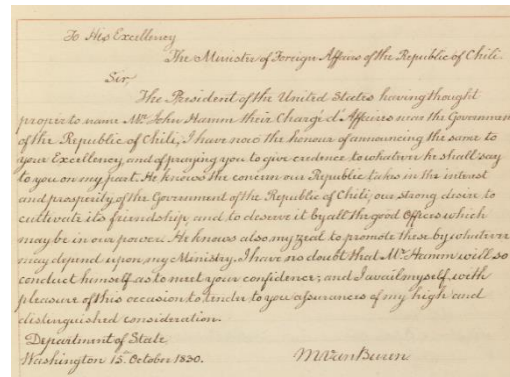 To His Excellency
The Minister of Foreign Affairs of the Republic of Chili.
Sir,
The President of the United States having thought
proper to name Mr. John Hamm their Chargé d'Affaires near the Government
of the Republic of Chili, I have now the honour of announcing the same to
your Excellency, and of praying you to give credence to whatever he shall say
to you on my part. He knows the concern our Republic takes in the interest
and prosperity of the Government of the Republic of Chili, our strong desire to
cultivate its friendship, and to deserve it by all the good Offices which
may be in our power. He knows also my zeal to promote these by whatever
may depend upon my Ministry. I have no doubt that Mr. Hamm will so
conduct himself as to meet your confidence; and I avail myself with
pleasure of this occasion to tender to you assurances of my high and
distinguished consideration.
Department of State
Washington 15th October 1830.
M Van Buren